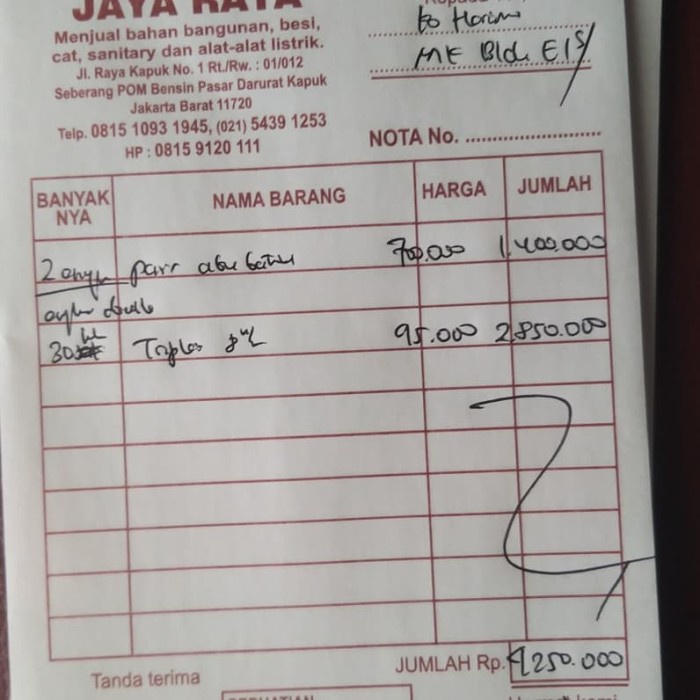 JAYA RAYA
Menjual bahan bangunan, besi,
cat, sanitary dan alat-alat listrik.
Jl. Raya Kapuk No. 1 Rt./Rw. : 01/012
Seberang POM Bensin Pasar Darurat Kapuk
Jakarta Barat 11720
Telp. 0815 1093 1945, (021) 5439 1253
HP : 0815 9120 111
MK Blok E15
NOTA No.
BANYAK NYA NAMA BARANG HARGA JUMLAH
2 pasir abu batu 700.000 1.400.000
30 Triplex 8ml 95.000 2.850.000
JUMLAH Rp. 4.250.000
Tanda terima